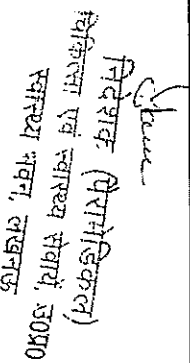 निदेशक (पैरामेडिकल)
चिकित्सा एवं स्वास्थ्य सेवायें, उ0प्र0
स्वास्थ्य भवन, लखनऊ